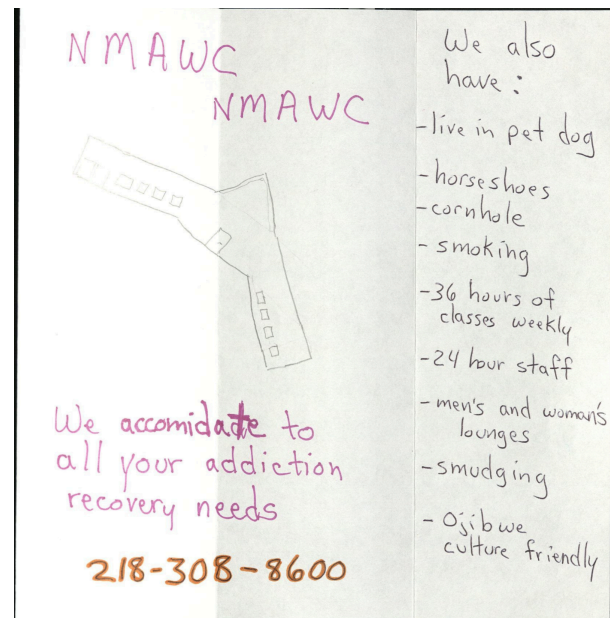 NMAWC
NMAWC
We accomidate to
all your addiction
recovery needs
218-308-8600
We also
have:
-live in pet dog
-horseshoes
-cornhole
-smoking
-36 hours of
classes weekly
-24 hour staff
-men's and woman's
lounges
-smudging
-Ojibwe
culture friendly